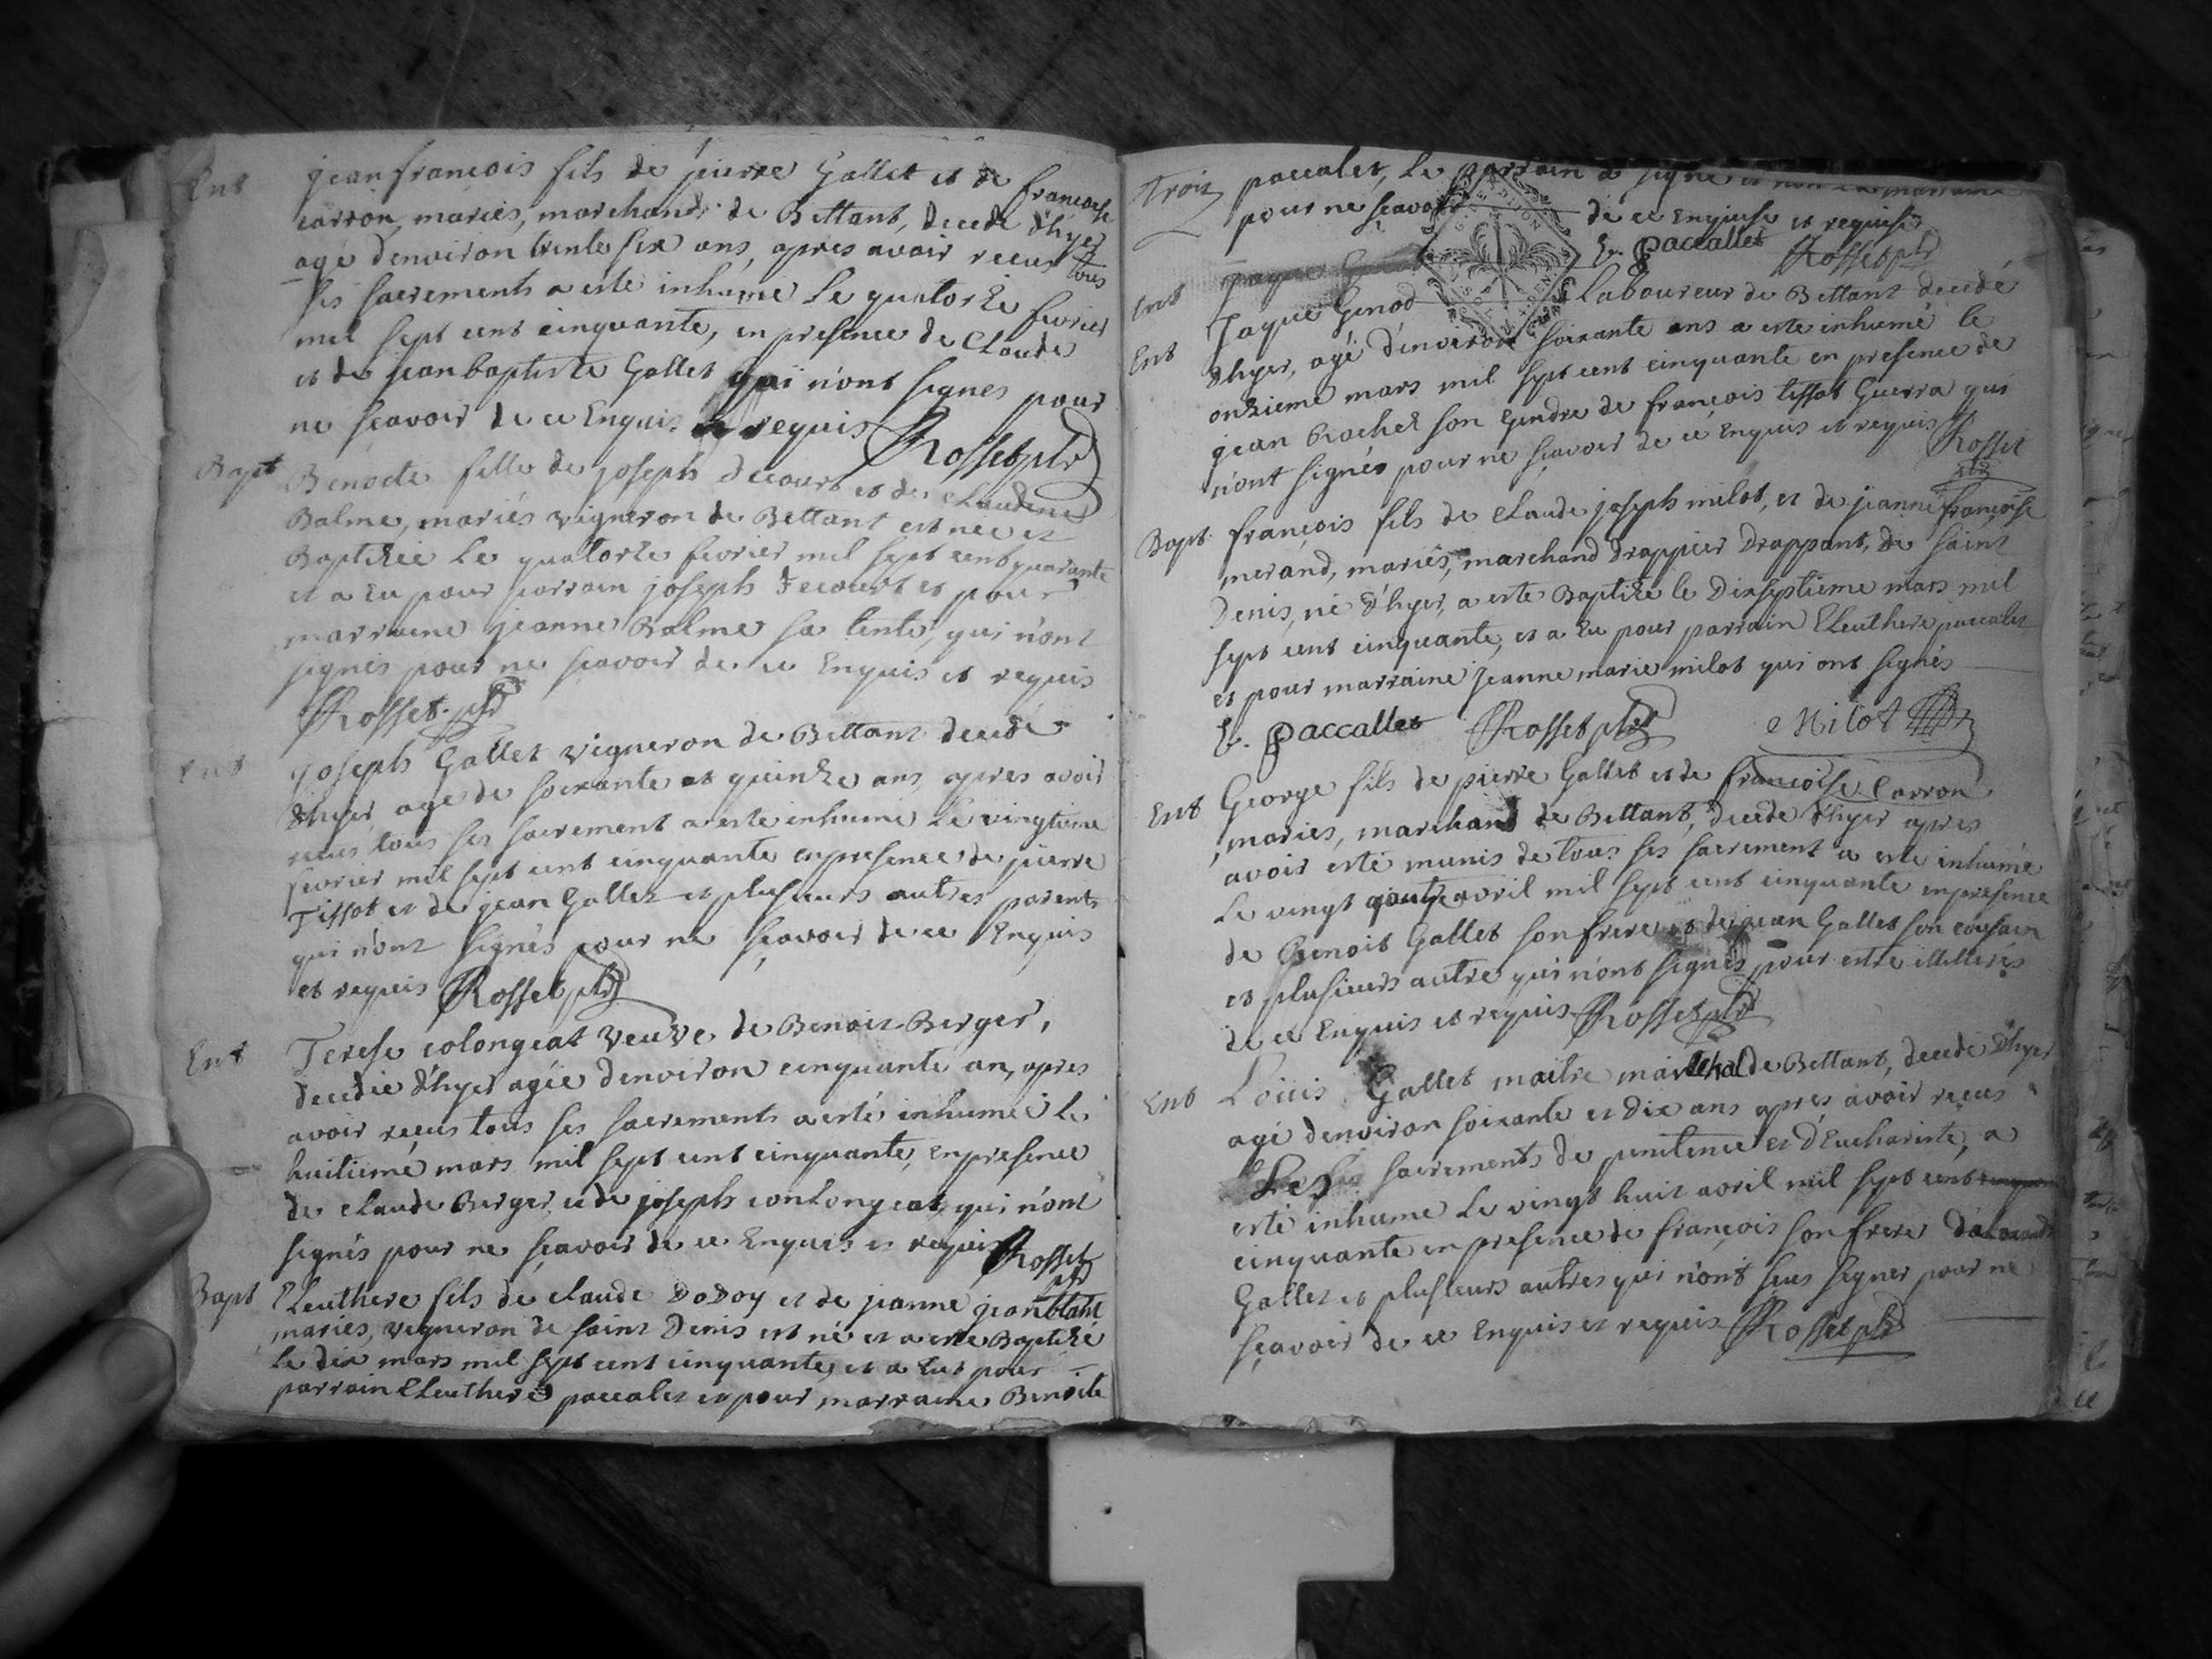 Ent
jean françois fils de pierre Gallet et de françoise
carron, mariés, marchand de Bettant, decede d'hyer
agé denviron trente six ans, apres avoir recus tous
ses sacrements a esté inhumé le quatorze fevrier
mil sept cent cinquante, en presence de Claude
et de jean baptiste Gallet qui n'ont signes pour
ne scavoir de ce Enquis et requis Rosset ptre
Bapt
Benoite fille de joseph Decourt et de Claudine
Balme, mariés vigneron de Bettant est neé et
Baptizée le quatorze fevrier mil sept cent quarante
et a Eu pour parrain joseph Decourt et pour
marraine jeanne Balme sa tente, qui n'ont
signés pour ne scavoir de ce Enquis et requis
Rosset ptre
Ent
joseph Gallet vigneron de Bettant decedé
d'hyer agé de soixante et quinze ans, apres avoir
recus tous ses sacrement a esté inhumé le vingtieme
fevrier mil sept cent cinquante en presence de pierre
Tissot et de jean Gallet et plusieurs autres parents
qui n'ont signés pour ne sçavoir de ce Enquis
et requis Rosset ptre
Ent
Terese colongeat veuve de Benoit Berger,
decedée d'hyer agée denviron cinquante an, apres
avoir recus tous ses sacrements a esté inhumée le
huitieme mars mil sept cent cinquante, en presence
de Claude Berger et de joseph conlongeat, qui n'ont
signés pour ne sçavoir de ce Enquis et requis Rosset
ptre
Bapt
Eleuthere fils de claude Dodoy et de jeanne jean blanc
mariés, vigneron de saint Denis est né et a esté Baptizé
le dix mars mil sept cent cinquante, et a Eut pour
parrain Eleuthere paccalet et pour marraine Benoite
Trois
paccalet, le parrain a signé et non la marraine
pour ne sçavoir de ce Enquise et requise
E. paccallet Rosset ptre
Ent
Ent
Jaque Genod Laboureur de Bettant decedé
d'hyer, agé d'environ soixante ans a esté inhumé le
onzieme mars mil sept cent cinquante en presence de
jean Rochet son gendre de françois tissot Guerra qui
n'ont signés pour ne sçavoir de ce Enquis et requis Rosset
ptre
Bapt
françois fils de claude joseph milot, et de jeanne françoise
merand, mariés, marchand drappier drappant, de saint
Denis, né d'hyer, a esté Baptizé le Dixseptieme mars mil
sept cent cinquante, et a Eu pour parrain Eleuthere paccalet
et pour marraine jeanne marie milot qui ont signés
E. paccallet Rosset ptre Milot
Ent
George fils de pierre Gallet et de françoise Carron
mariés, marchand de Bettant, decede d'hyer apres
avoir esté munis de tous ses sacrement a esté inhumé
le vingt quatre avril mil sept cent cinquante en presence
de Benoit Gallet son frere et de jean Gallet son cousain
et plusieurs autre qui n'ont signés pour estre illetterés
de ce Enquis et requis Rosset ptre
Ent
Louis Gallet maitre marechal de Bettant, decede d'hyer
agé denviron soixante et dix ans apres avoir recus
Les sacrements de penitence et d'Euchariste, a
esté inhume le vingt huit avril mil sept cent
cinquante en presence de françois son frere d'alexandre
Gallet et plusieurs autres qui n'ont seus signer pour ne
sçavoir de ce Enquis et requis Rosset ptre